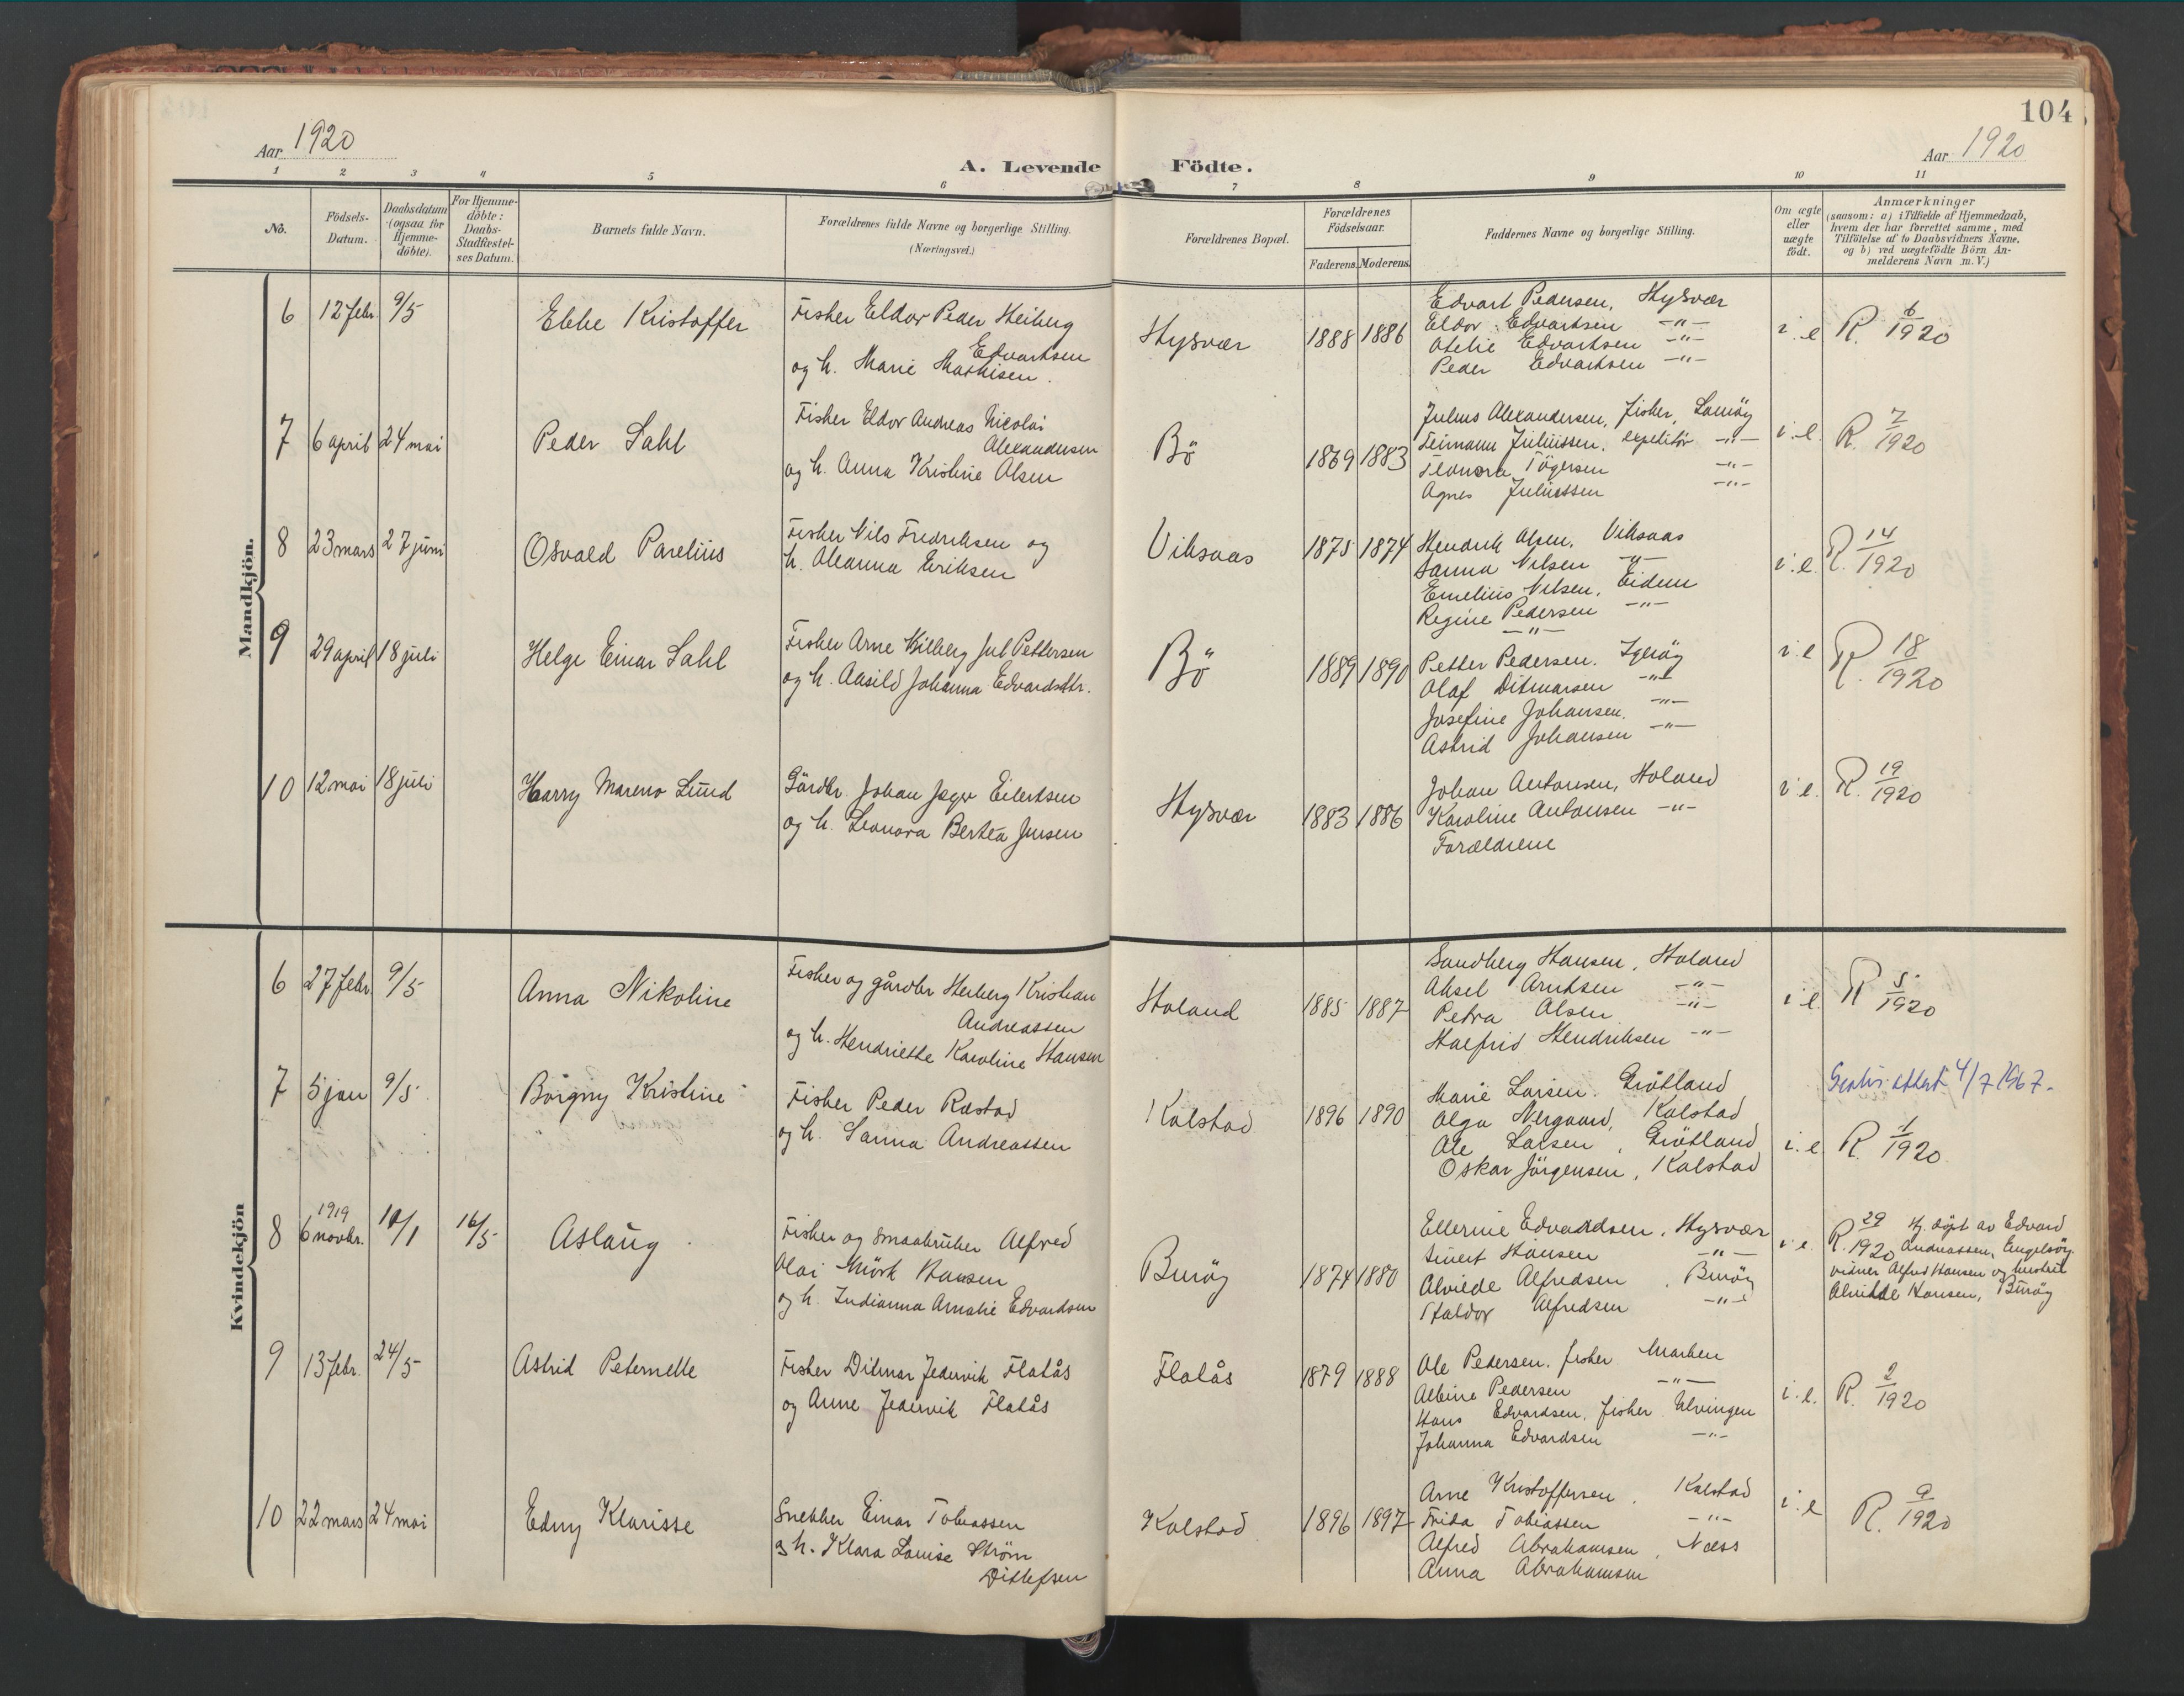 104
Aar 1920
A. Levende Födte.
Aar 1920
1 2 3 4 5 6 7 8 9 10 11
No.
Födsels-Datum.
Daabsdatum (ogsaa for Hjemme-döbte).
For Hjemme-döbte: Daabs-Stadfæstel-ses Datum.
Barnets fulde Navn.
Forældrenes fulde Navne og borgerlige Stilling. (Næringsvei.)
Forældrenes Bopæl.
Forældrenes Födselsaar.
Faderens. Moderens.
Faddernes Navne og borgerlige Stilling.
Om ægte eller uægte födt.
Anmærkninger
(saasom: a) i Tilfælde af Hjemmedaab,
hvem der har forrettet samme, med
Tilföielse af to Daabsvidners Navne,
og b) ved uægtefödte Börn An-
melderens Navn m. V.)
Mandkjön.
6 12 febr. 9/5 Ebbe Kristoffer
Fisker Eldor Peder Heiberg
Edvartsen
og h. Marie Mathisen.
Hysvær 1888 1886
Edvart Pedersen, Hysvær
Eldor Edvartsen -"-
Otelie Edvartsen -"-
Peder Edvartsen -"-
i. e R. 6/1920
7 6 april 24 mai Peder Dahl
Fisker Eldor Andreas Nicolai
Alexandersen
og h. Anna Kristine Olsen
Bö 1869 1883
Julius Alexandersen, fisker,
Juliussen, expeditör -"-
-"-
Agnes Juliussen -"-
i. e. R. 7/1920
8 23 mars 27 juni Osvald Parelius
Fisker Nils Fredriksen og
h. Oleanna Eriksen
Viksaas 1875 1874
Hendrik Olsen, Viksaas
Sanna Nilsen -"-
Emelius Nilsen, Eidem
Regine Pedersen -"-
-"-
i. e. R. 14/1920
9 29 april 18 juli Helge Einar Dahl
Fisker Arne Hilberg Jul Pettersen
og h. Aasild Johanna Edvardsdtr.
Bö 1889 1890
Petter Pedersen. Igeröy
Olaf Ditmarsen -"-
Josefine Johansen. -"-
Astrid Johansen -"-
i. e R. 18/1920
10 12 mai 18 juli Harry Mareno Lund
Gårdbr. Johan Jeger Eilertsen
og h. Leonora Bertea Jensen
Hysvær 1883 1886
Johan Antonsen, Holand
Karoline Antonsen -"-
Forældrene
i. e. R. 19/1920
Kvindekjön
6 27 febr. 9/5 Anna Nikoline
Fisker og gårdbr Herberg Kristian
Andreassen
og h. Hendriette Karoline Hansen
Holand 1885 1887
Sandberg Hansen, Holand
Aksel Arntsen -"-
Petra Olsen -"-
Halfrid Hendriksen -"-
i. e. R 5/1920
7 5 jan 9/5 Borgny Kristine
Fisker Peder Rastad
og h. Sanna Andreassen
Kalstad 1896 1890
Marie Larsen. Grötland
Olga Nergaard, Kalstad
Ole Larsen, Grötland
Oskar Jörgensen, Kalstad
i. e. R. 1/1920
Gratis attest 4/7 1967.
8 1919 6 novbr. 10/1 16/5 Aslaug
Fisker og smaabruker Alfred
Olai Mörk Hansen
og h. Indianna Amalie Edvardsen
Buröy 1874 1880
Ellerine Edvardsen, Hysvær
Sivert Hansen -"-
Alvilde Alfredsen, Buröy
Haldor Alfredsen -"-
i. e. R. 29/1920 Hj. döpt av Edvard
Andreassen, Engelsöy.
vidner Alfred Hansen og hustru
Alvilde Hansen, Buröy
9 13 febr. 24/5 Astrid Peternelle
Fisker Ditmar Jedervik Flatås
og Anne Jedervik Flatås
Flatås 1879 1888
Ole Pedersen, fisker Marken
Albine Pedersen -"-
Hans Edvardsen, fisker Elvingen
Johanna Edvardsen -"-
i. e. R. 2/1920
10 22 mars 24 mai Edny Klarisse
Snekker Einar Tobiassen
og h. Klara Louise Ström
Ditlefsen
Kalstad 1896 1897
Arne Kristoffersen, Kalstad
Frida Tobiassen -"-
Alfred Abrahamsen, Næss
Anna Abrahamsen
i. e R. 9/1920